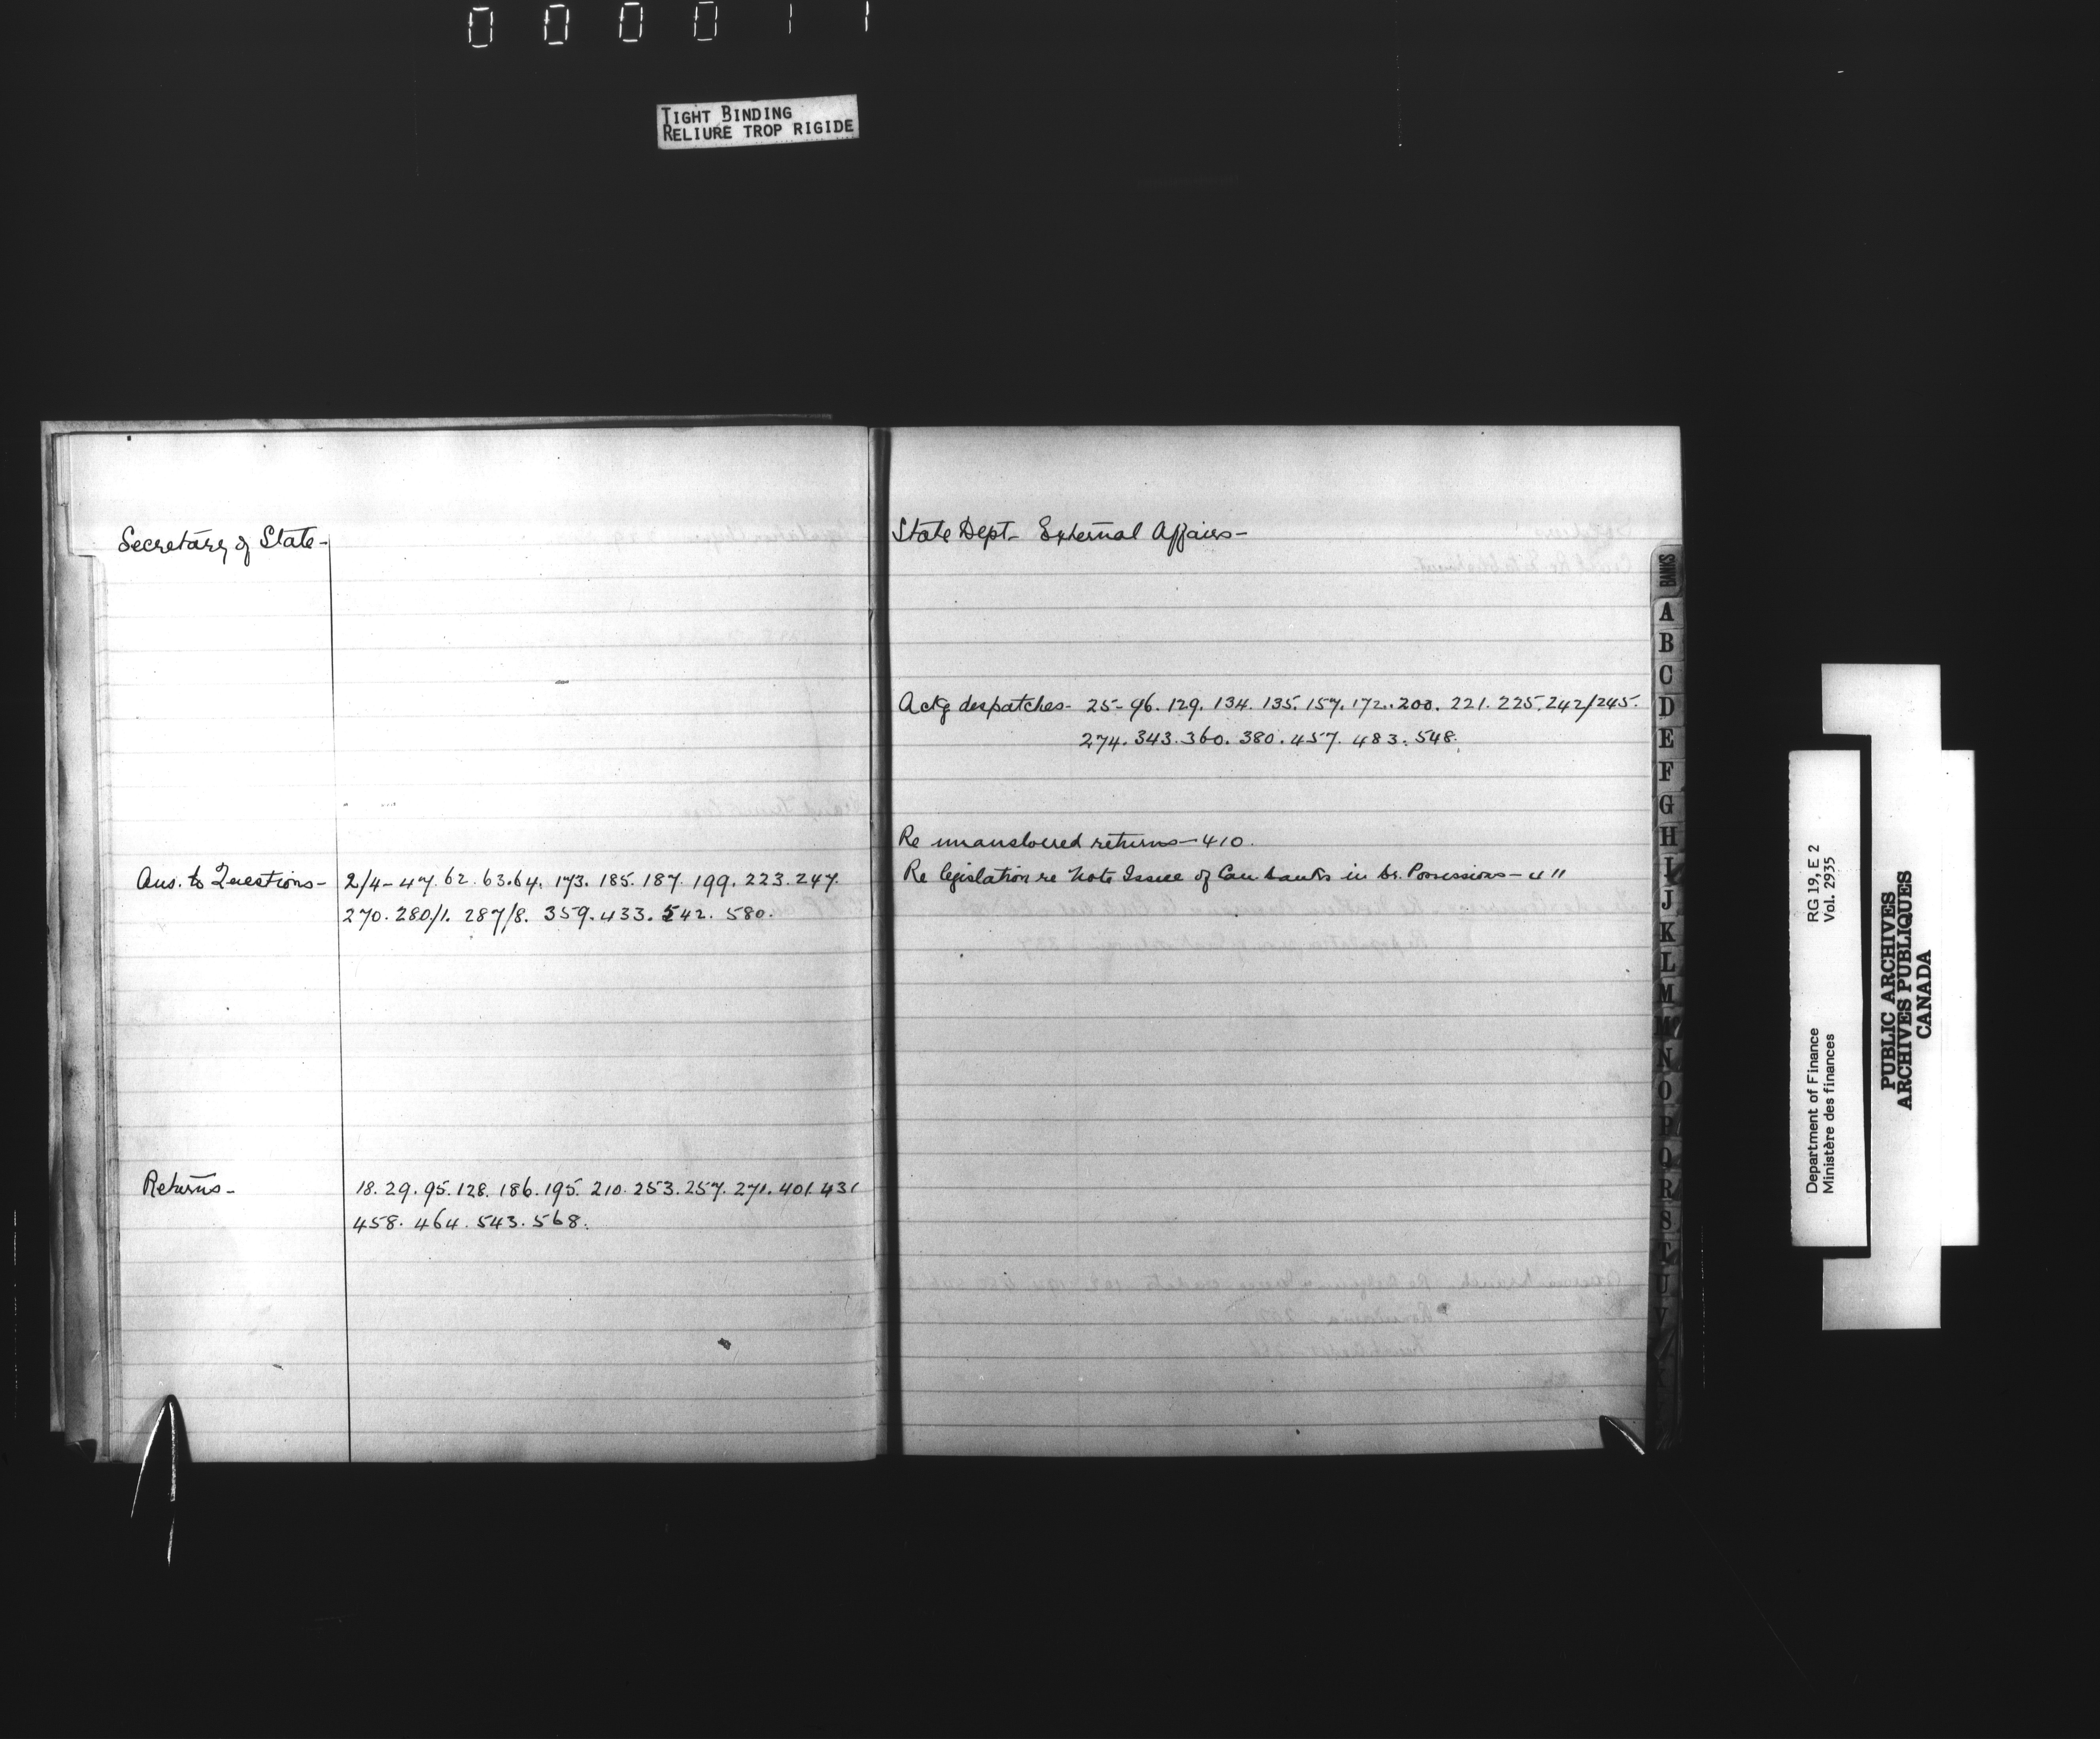 000011
TIGHT BINDING
RELIURE TROP RIGIDE
Secretary of State-
Ans. to Questions- 2/4-47. 62. 63. 64. 173. 185. 187. 199. 223. 247.
270. 280/1. 287/8. 359. 433. 542. 580.
Returns- 18. 29. 95. 128. 186. 195. 210. 253. 257. 271. 401. 431
458. 464. 543. 568.
State Dept- External Affairs-
Actg despatches- 25-96. 129. 134. 135. 157. 172. 200. 221. 225. 242/245.
274. 343. 360. 380. 457. 483. 548.
Re unanswered returns-410.
Re legislation re Note Issue of Can banks in Br. Possessions-411
BANKS
A
B
C
D
E
F
G
H
I
J
K
L
M
N
O
P
Q
R
S
T
U
V
Department of Finance RG 19, E 2
Ministère des finances Vol. 2935
PUBLIC ARCHIVES
ARCHIVES PUBLIQUES
CANADA